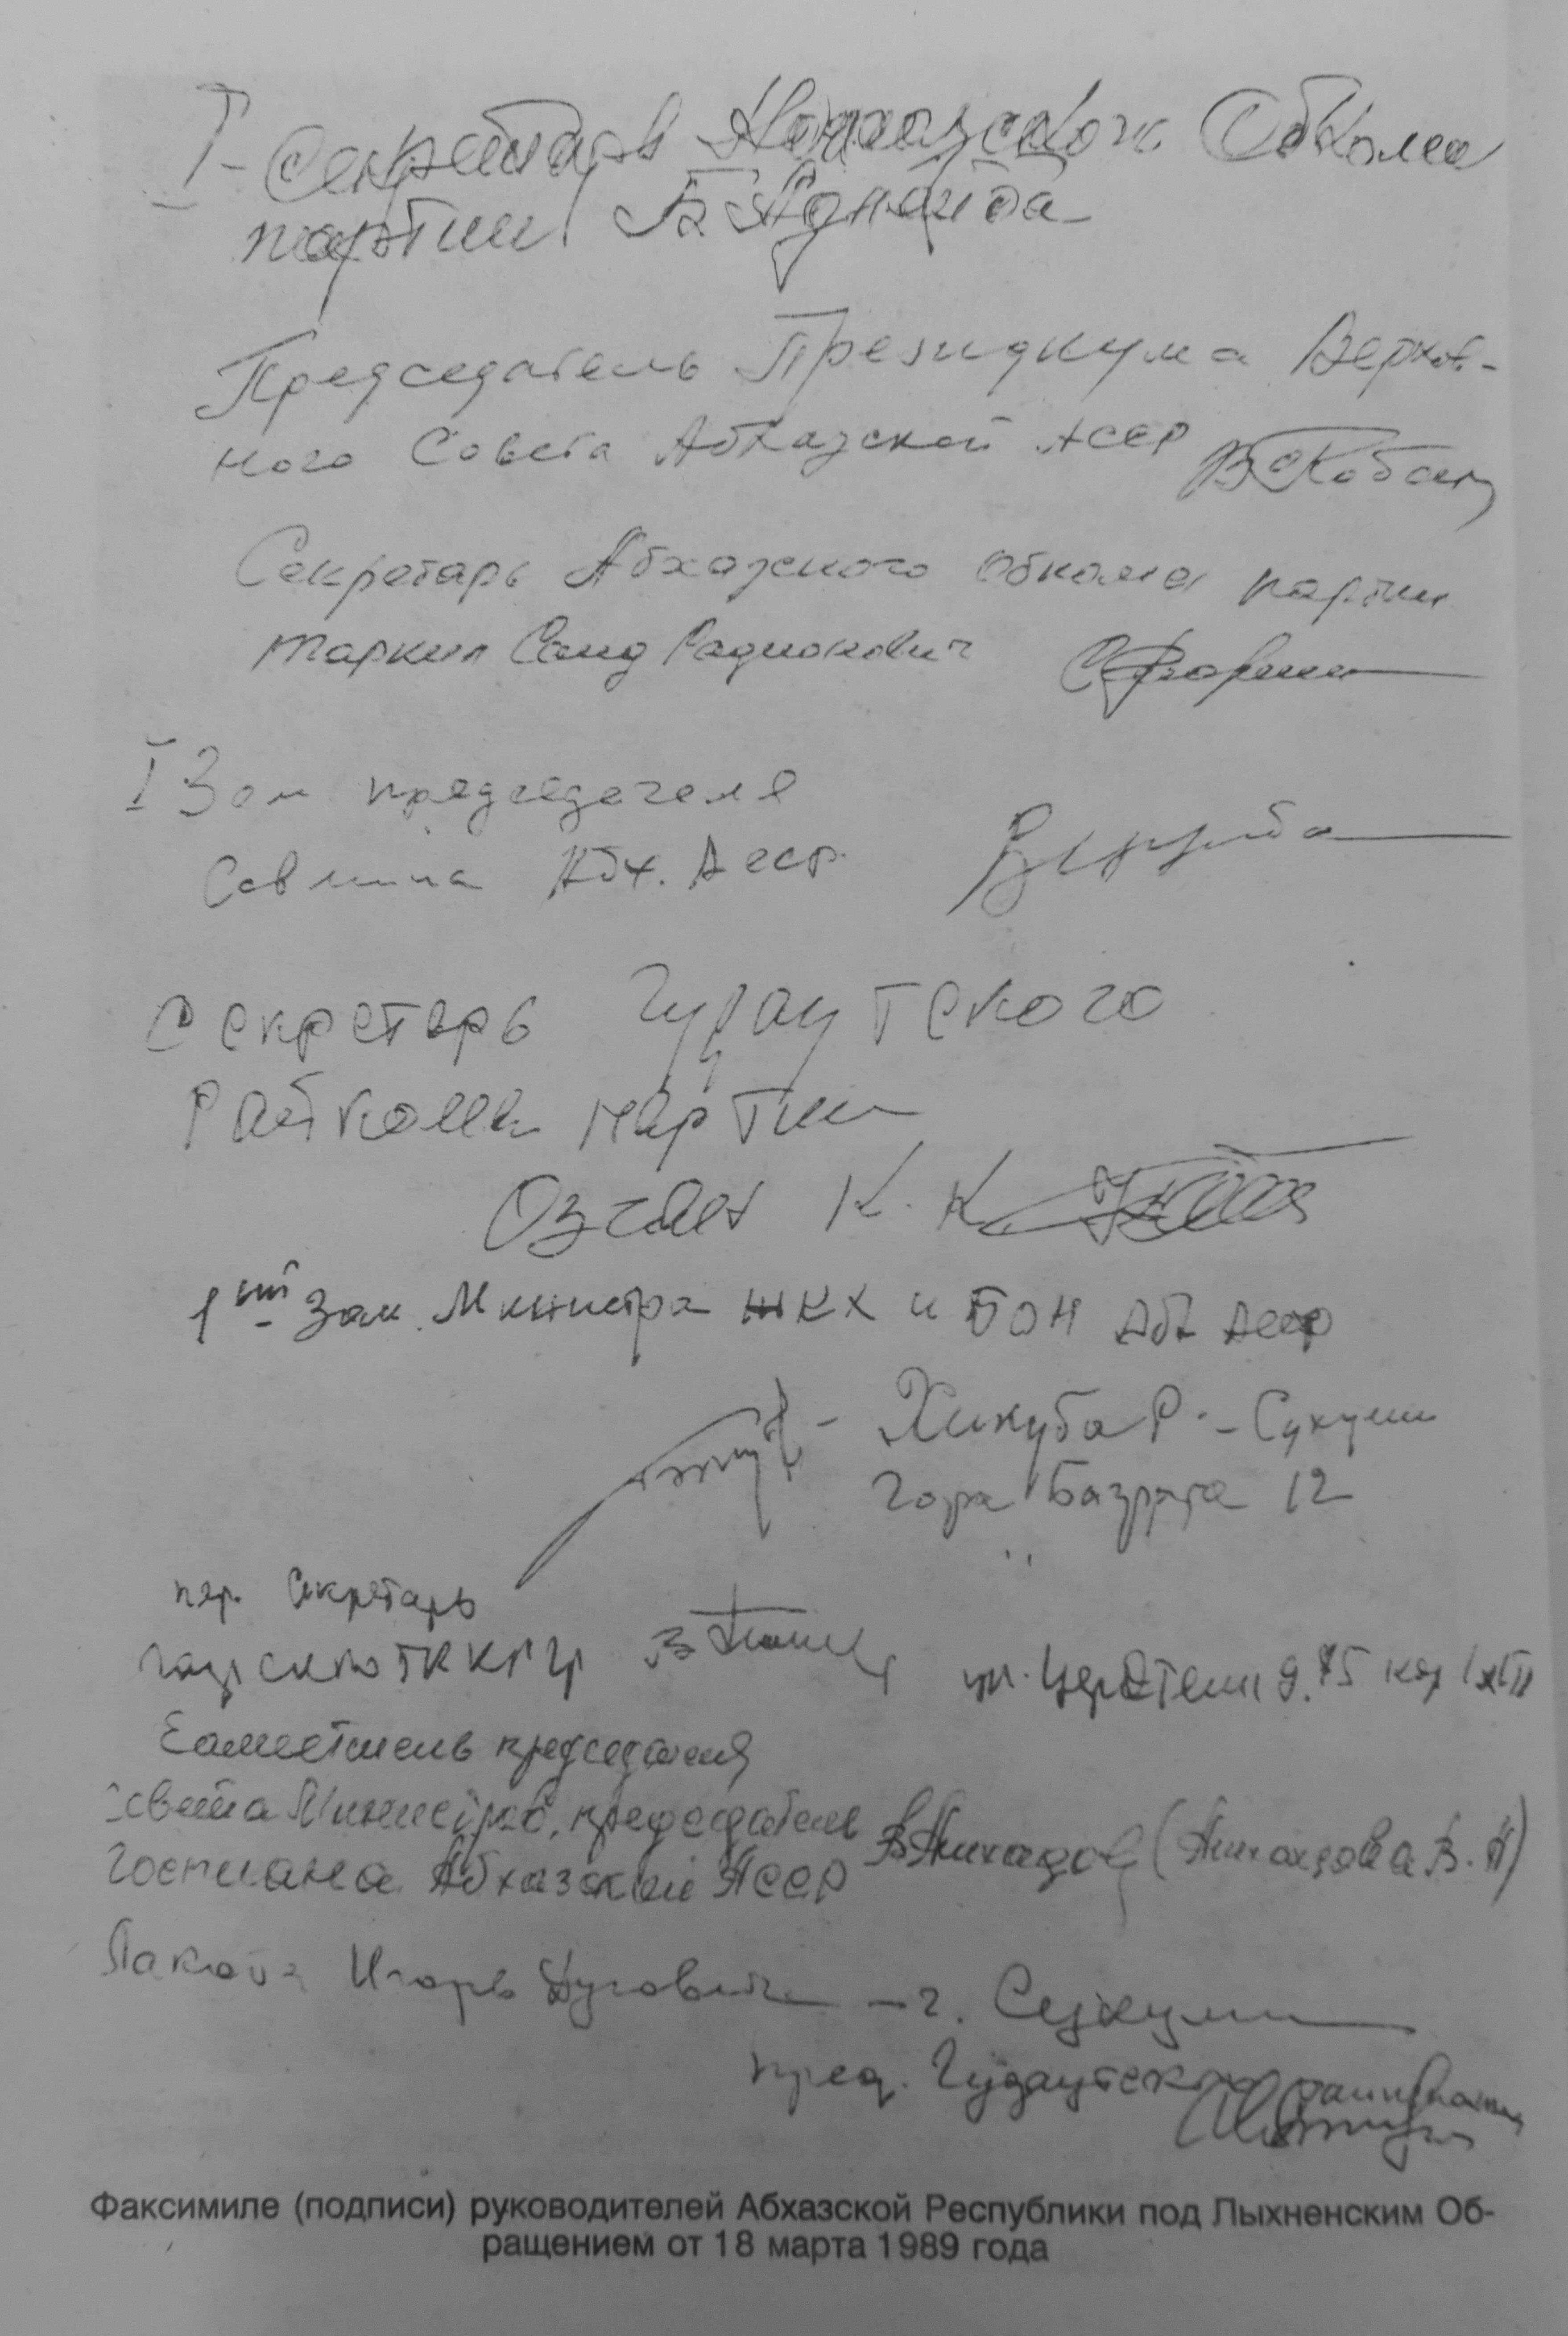 I- Секретарь Абхазского Обкома
партии Б Адлейба
Председатель Президиума Верхов-
ного Совета Абхазской АССР В Кобахия
Секретарь Абхазского обкома партии
Таркил Саид Радионович
I Зам председателя
Совмина Абх. АССР.
Секретарь Гудаутского
Райкома партии
Озган К. К
1ый зам. Министра ЖКХ и БОН Абх АССР
Хикуба Р. - Сухуми
гора Баграта 12
пер. Секретарь
ул. Церетели д. 75
Заместитель председателя
Совета Министров, председатель
Госплана Абхазской АССР
Лакоба Игорь - г. Сухуми
пред. Гудаутского
Факсимиле (подписи) руководителей Абхазской Республики под Лыхненским Об-
ращением от 18 марта 1989 года